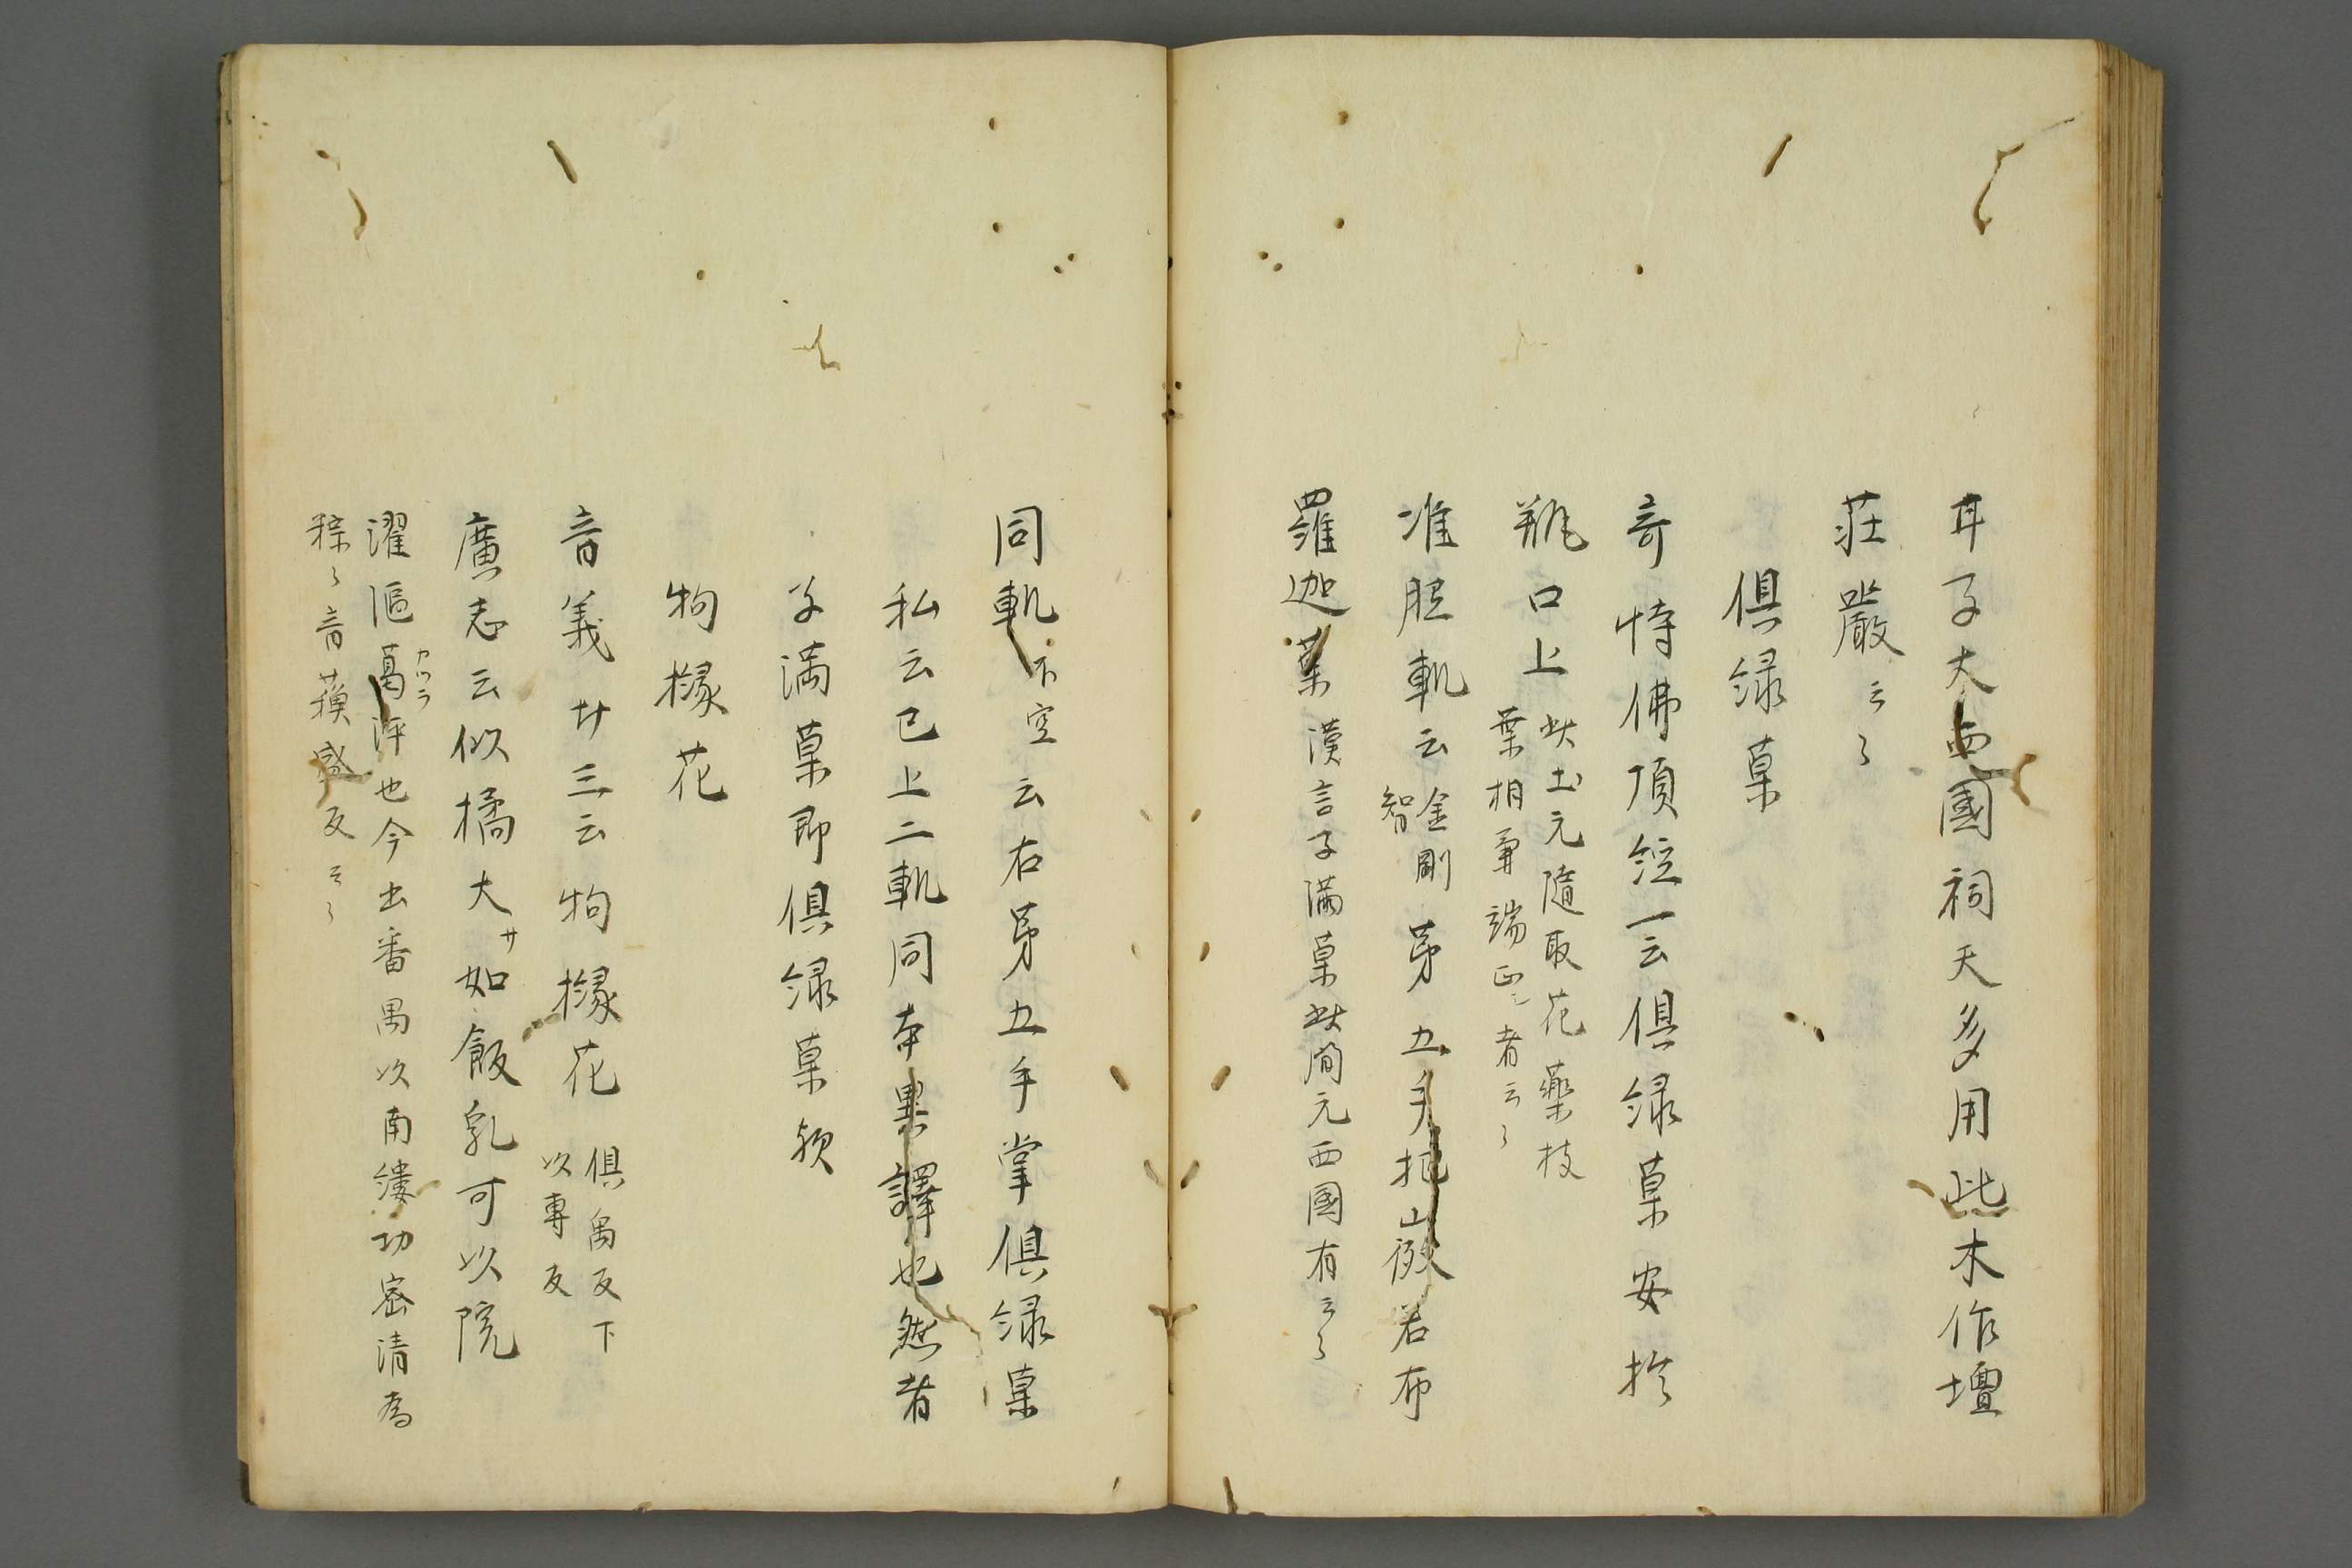 耳子大西國祠天多用此木作壇
莊嚴云々
俱緣菓
奇特佛頂經一云俱緣菓安扵
瓶口上
此土元隨取花藥枝
葉相兼端正者云々
准胝軌云
金剛
智
第五手把微若布
羅迦菓
漢言子滿菓此間元西國有云々
同軌
不空
云右第五手掌俱緣菓
私云已上二軌同本異譯也然者
子滿菓即俱緣菓欤
枸櫞花
音義廿三云枸櫞花
俱禹反下
以專反
廣志云似橘大
如飯乳可以院
濯漚葛
也今出番禺以南縷功密清為
音蘋盛反云々